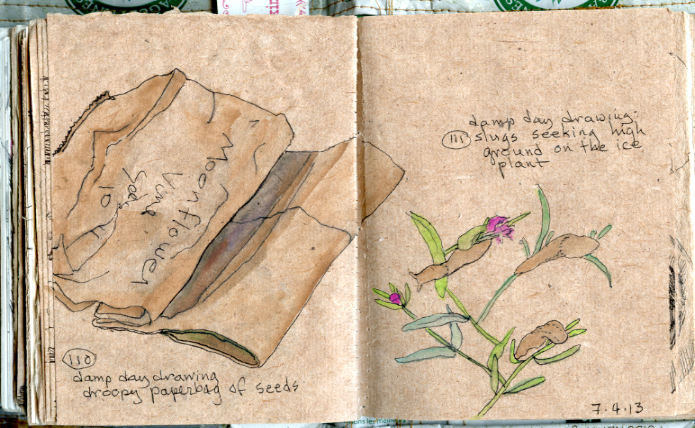 Moonflower
Vine
10
110
damp day drawing
droopy paperbag of seeds
damp day drawing:
111 slugs seeking high
ground on the ice
plant
7.4.13